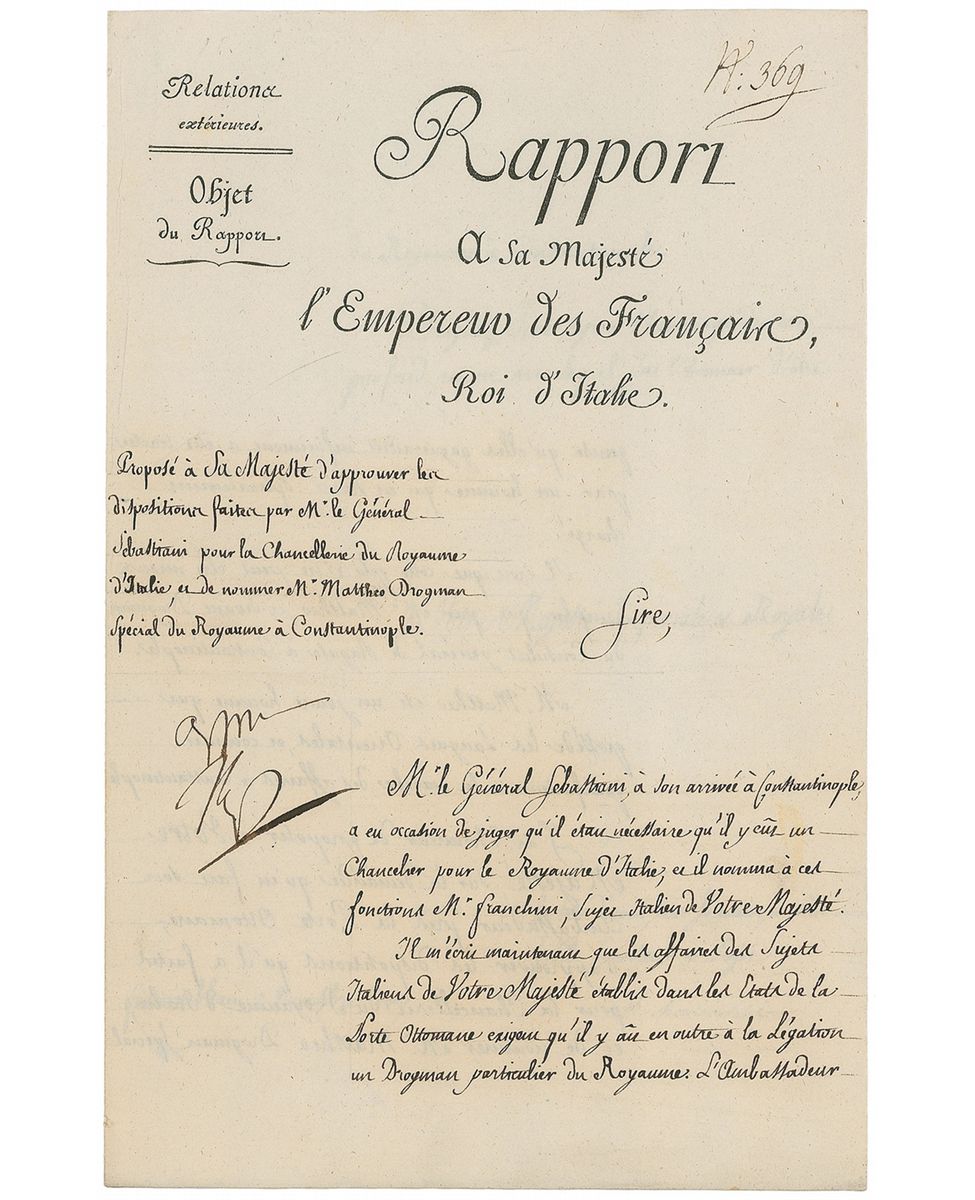 N.º 369
Relations
extérieures.
Objet
du Rapport.
Rapport
A Sa Majesté
l'Empereur des Français,
Roi d'Italie.
Proposé à Sa Majesté d'approuver les
dispositions faites par Mr. le Général
Sébastiani pour la Chancellerie du Royaume
d'Italie, et de nommer Mr. Mattheo Drogman
spécial du Royaume à Constantinople.
Sire,
appr
Mr. le Général Sebastiani, à son arrivée à Constantinople,
a eu occasion de juger qu'il était nécessaire qu'il y eût un
Chancelier pour le Royaume d'Italie, et il nomma à ces
fonctions Mr. Franchini, Sujet Italien de Votre Majesté.
Il m'écrit maintenant que les affaires des Sujets
Italiens de Votre Majesté établis dans les Etats de la
Porte Ottomane exigent qu'il y ait en outre à la Légation
un Drogman particulier du Royaume. L'Ambassadeur